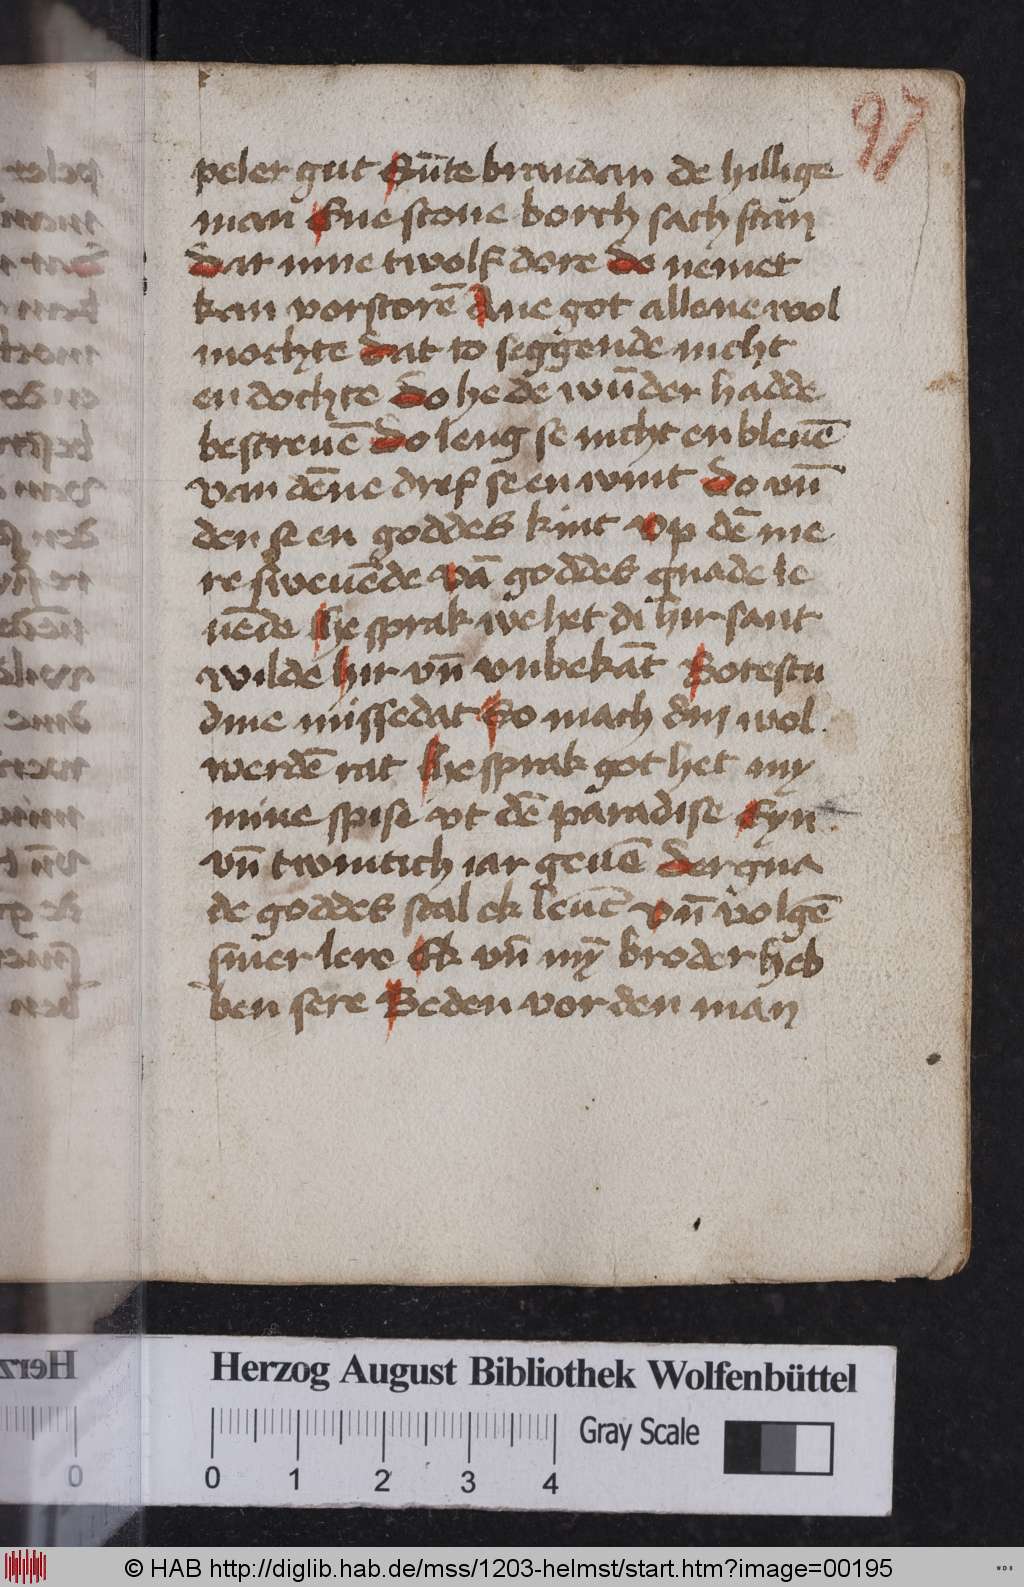 97
peler gut Sūte brandan de hillige
man Ene scone borch sach stan
Dar inne twolf dore De nemet
kan vorstorē Ane got allene wol
mochte Dat to seggende nicht
en dochte Do he de wūder hadde
bescreuē Do leng se nicht en bleuē
van dēne dref se en wint Do vū
den se en goddes kint Vp dē me
re sweuēde Vā goddes gnade le
uēde he sprak we het di hir sant
wilde hir vn̄ vnbekāt Botestu
dine missedat So mach din wol
werdē rat he sprak got het my
mine spise vt dē paradise Eyn
vn̄ twintich iar geuē Der gna
de goddes scal ek leuē vn̄ volgē
siner lere Ek vn̄ mȳ broder heb
ben sere Beden vor den man
Herzog August Bibliothek Wolfenbüttel
0 1 2 3 4
Gray Scale
© HAB http://diglib.hab.de/mss/1203-helmst/start.htm?image=00195